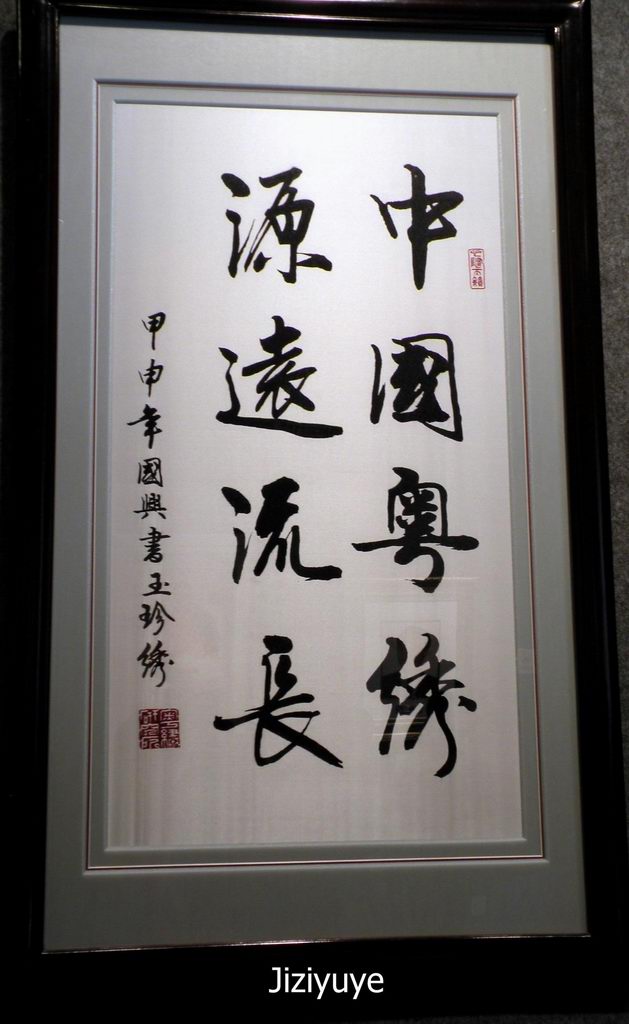 中國粵繡
源遠流長
甲申年國興書玉珍繡
Jiziyuye